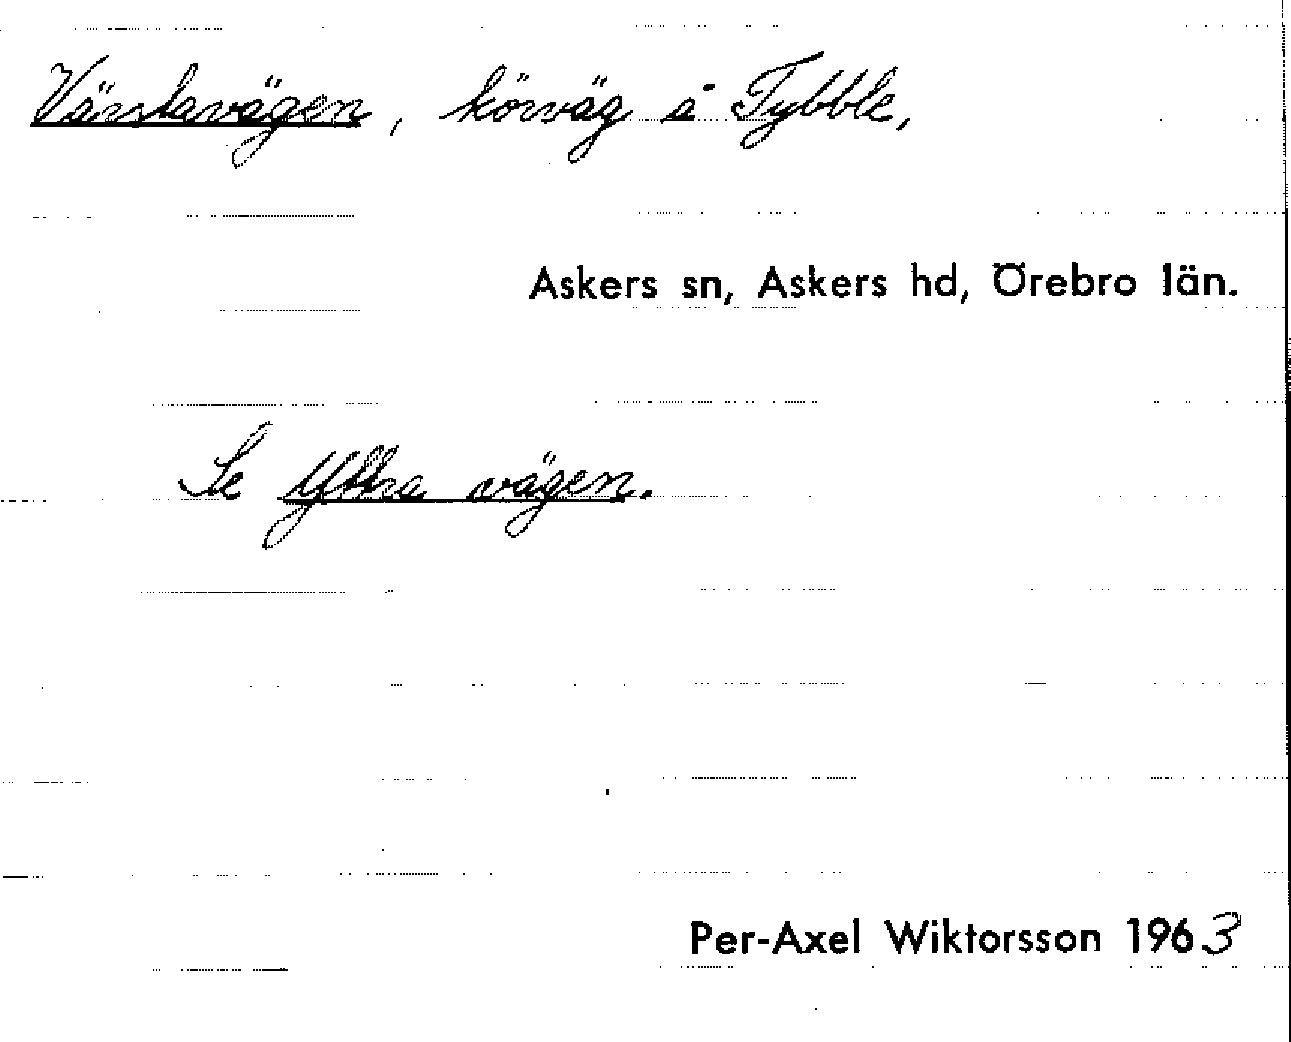 Värstavägen, körväg å Tybble,
Askers sn, Askers hd, Örebro län.
Se Yttra vägen.
Per-Axel Wiktorsson 1963